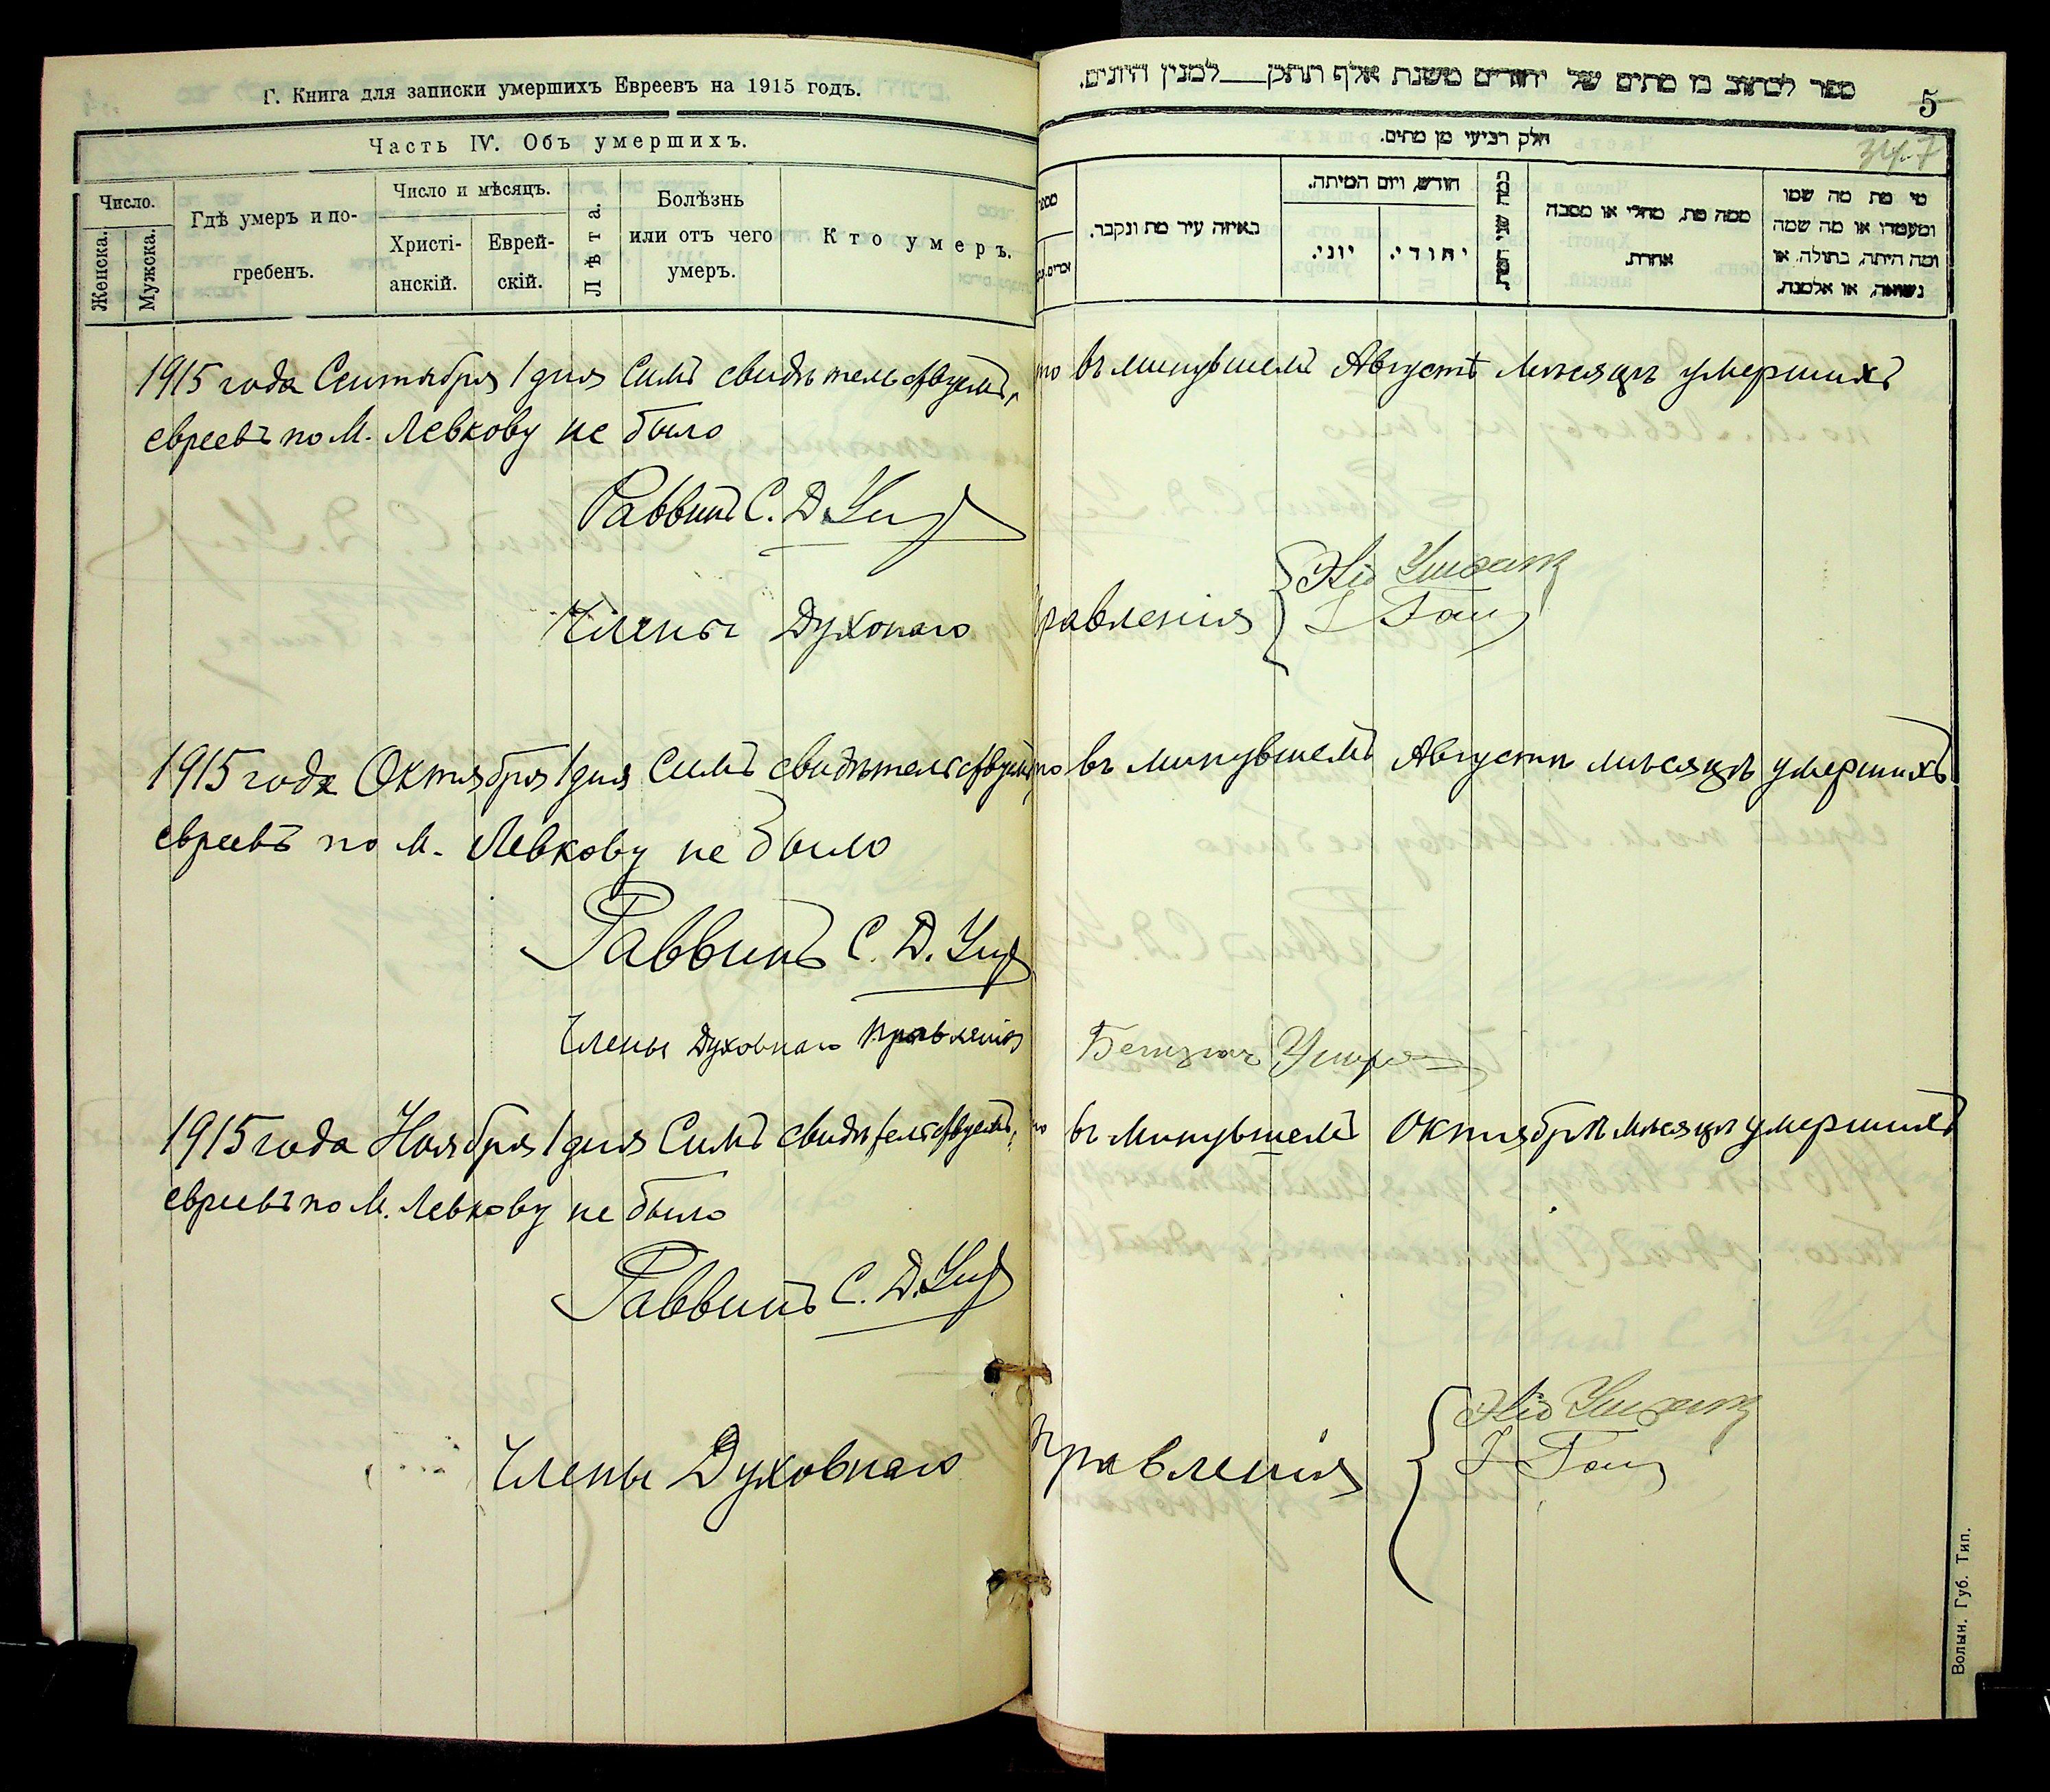 Г. Книга для записки умершихъ Евреевъ на 1915 годъ.
Часть IV. Объ умершихъ.
Число.
Женска.
Мужска.
Гдѣ умеръ и по-
гребенъ.
Число и мѣсяцъ.
Христі-
анскій.
Еврей-
скій.
Лѣта.
Болѣзнь
или отъ чего
умеръ.
Кто умеръ.
ספר לכתוב בו מתים של יהודים משנת אלף תתקן למנין היונים.
5
347
חלק רביעי מן מתים.
באיזה עיר מת ונקבר.
חודש, ויום המיתה.
יוני.
יהודי.
כמה שני המת.
ממה מת, מחלי או מסבה
אחרת.
מי מת מה שמו
ומעמדו או מה שמה
ומה היתה, בתולה, או
נשואה, או אלמנה.
1915 года Сентября 1 дня Симъ свидѣтельствуемъ, что въ минувшемъ Августѣ мѣсяцѣ умершихъ
евреевъ по М. Левкову не было
Раввинъ С. Д.
Члены Духонаго Правленія
1915 года Октября 1 дня Симъ свидѣтельствуемъ что въ минувшемъ Августѣ мѣсяцѣ умершихъ
евреевъ по М. Левкову не было
Раввинъ С. Д.
Члены Духовнаго Правленія
1915 года Ноября 1 дня Симъ свидѣтельствуемъ, что въ минувшемъ Октябрѣ мѣсяцѣ умершихъ
евреевъ по М. Левкову не было
Раввинъ С. Д.
Члены Духовнаго Правленія
Волын. Губ. Тип.